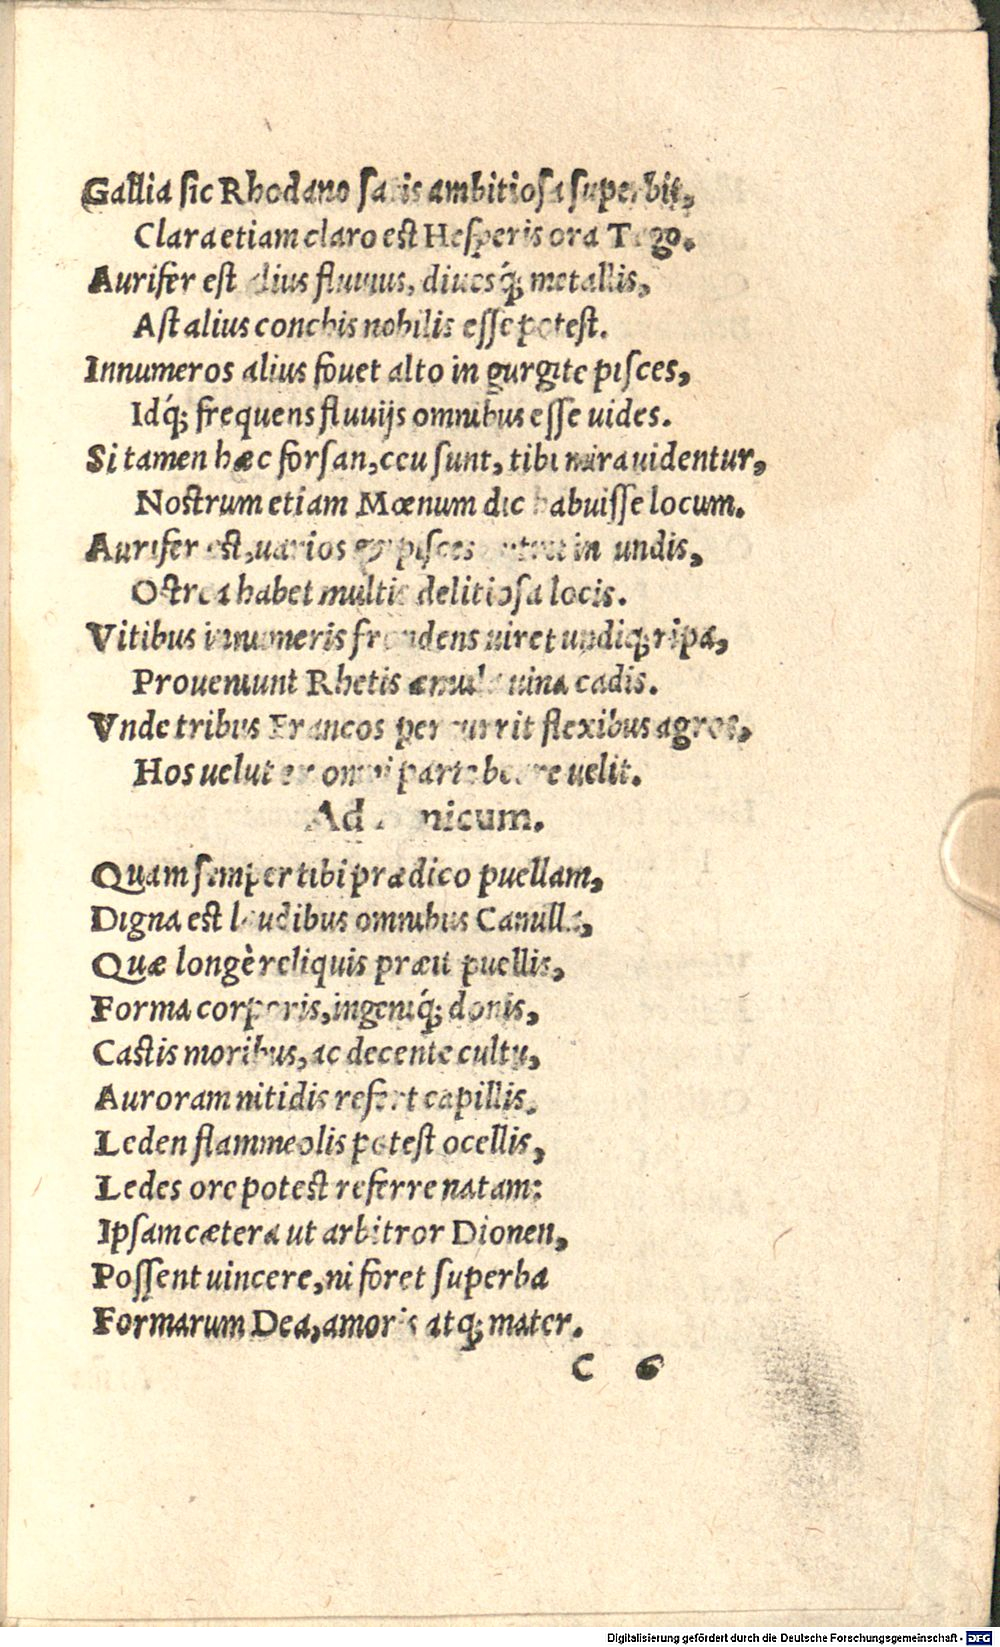 Gallia sic Rhodano satis ambitiosa superbit,
Clara etiam claro est Hesperis ora Tago.
Aurifer est alius fluuius, diuesq́; metallis,
Ast alius conchis nobilis esse potest.
Innumeros alius fouet alto in gurgite pisces,
Idq́; frequens fluuijs omnibus esse uides.
Si tamen hæc forsan, ceu sunt, tibi mira uidentur,
Nostrum etiam Mœnum dic habuisse locum.
Aurifer est, uarios pisces in undis,
Ostrea habet multis delitiosa locis.
Vitibus innumeris frondens uiret undiq; ripa,
Proueniunt Rhetis æmula uina cadis.
Vnde tribus Francos percurrit flexibus agros,
Hos uelut ex omni parte beare uelit.
Ad Amicum.
Quam semper tibi prædico puellam,
Digna est laudibus omnibus Camilla,
Quæ longè reliquis præit puellis,
Forma corporis, ingeniq́; donis,
Castis moribus, ac decente cultu,
Auroram nitidis refert capillis.
Leden flammeolis potest ocellis,
Ledes ore potest referre natam:
Ipsam cætera ut arbitror Dionen,
Possent uincere, ni foret superba
Formarum Dea, amoris atq; mater.
C 6
Digitalisierung gefördert durch die Deutsche Forschungsgemeinschaft - DFG